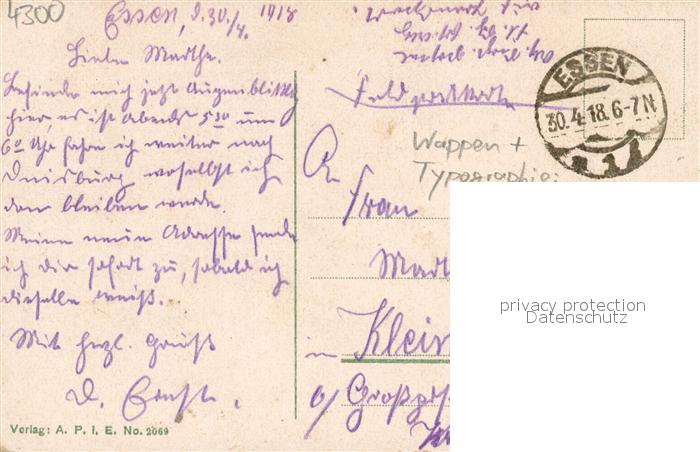 4300
Essen, d. 30./4. 1918
Liebe Marthe.
Befinde mich jetzt Augenblicklich
hier, es ist Abends 5 30 um
6 Uhr fahre ich weiter nach
Duisburg woselbst ich
dan bleiben werde.
Meine neue Adresse sende
ich dir sofort zu, sobald ich
dieselbe weiß.
Mit herzl. Gruß
D. Ernst.
Verlag: A. P. I. E. No. 2069
Feldpostkarte
ESSEN
30.4.18.6-7N
Wappen +
Typographie:
An
Frau
in Klein
Großg
privacy protection
Datenschutz